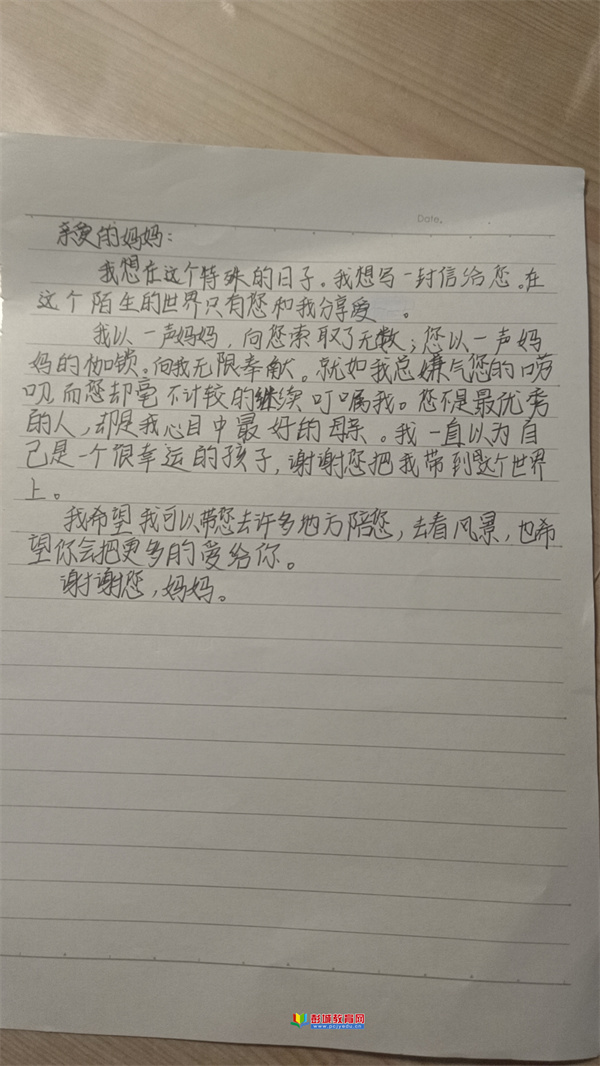 Date.
亲爱的妈妈：
我想在这个特殊的日子。我想写一封信给您。在
这个陌生的世界只有您和我分享爱。
我以一声妈妈，向您索取了无数；您以一声妈
妈的枷锁。向我无限奉献。就如我总嫌气您的唠
叨，而您却毫不计较的继续叮嘱我。您不是最优秀
的人，却是我心目中最好的母亲。我一直以为自
己是一个很幸运的孩子，谢谢您把我带到这个世界
上。
我希望我可以带您去许多地方陪您，去看风景，也希
望你会把更多的爱给你。
谢谢您，妈妈。
彭城教育网
www.pcjyedu.cn